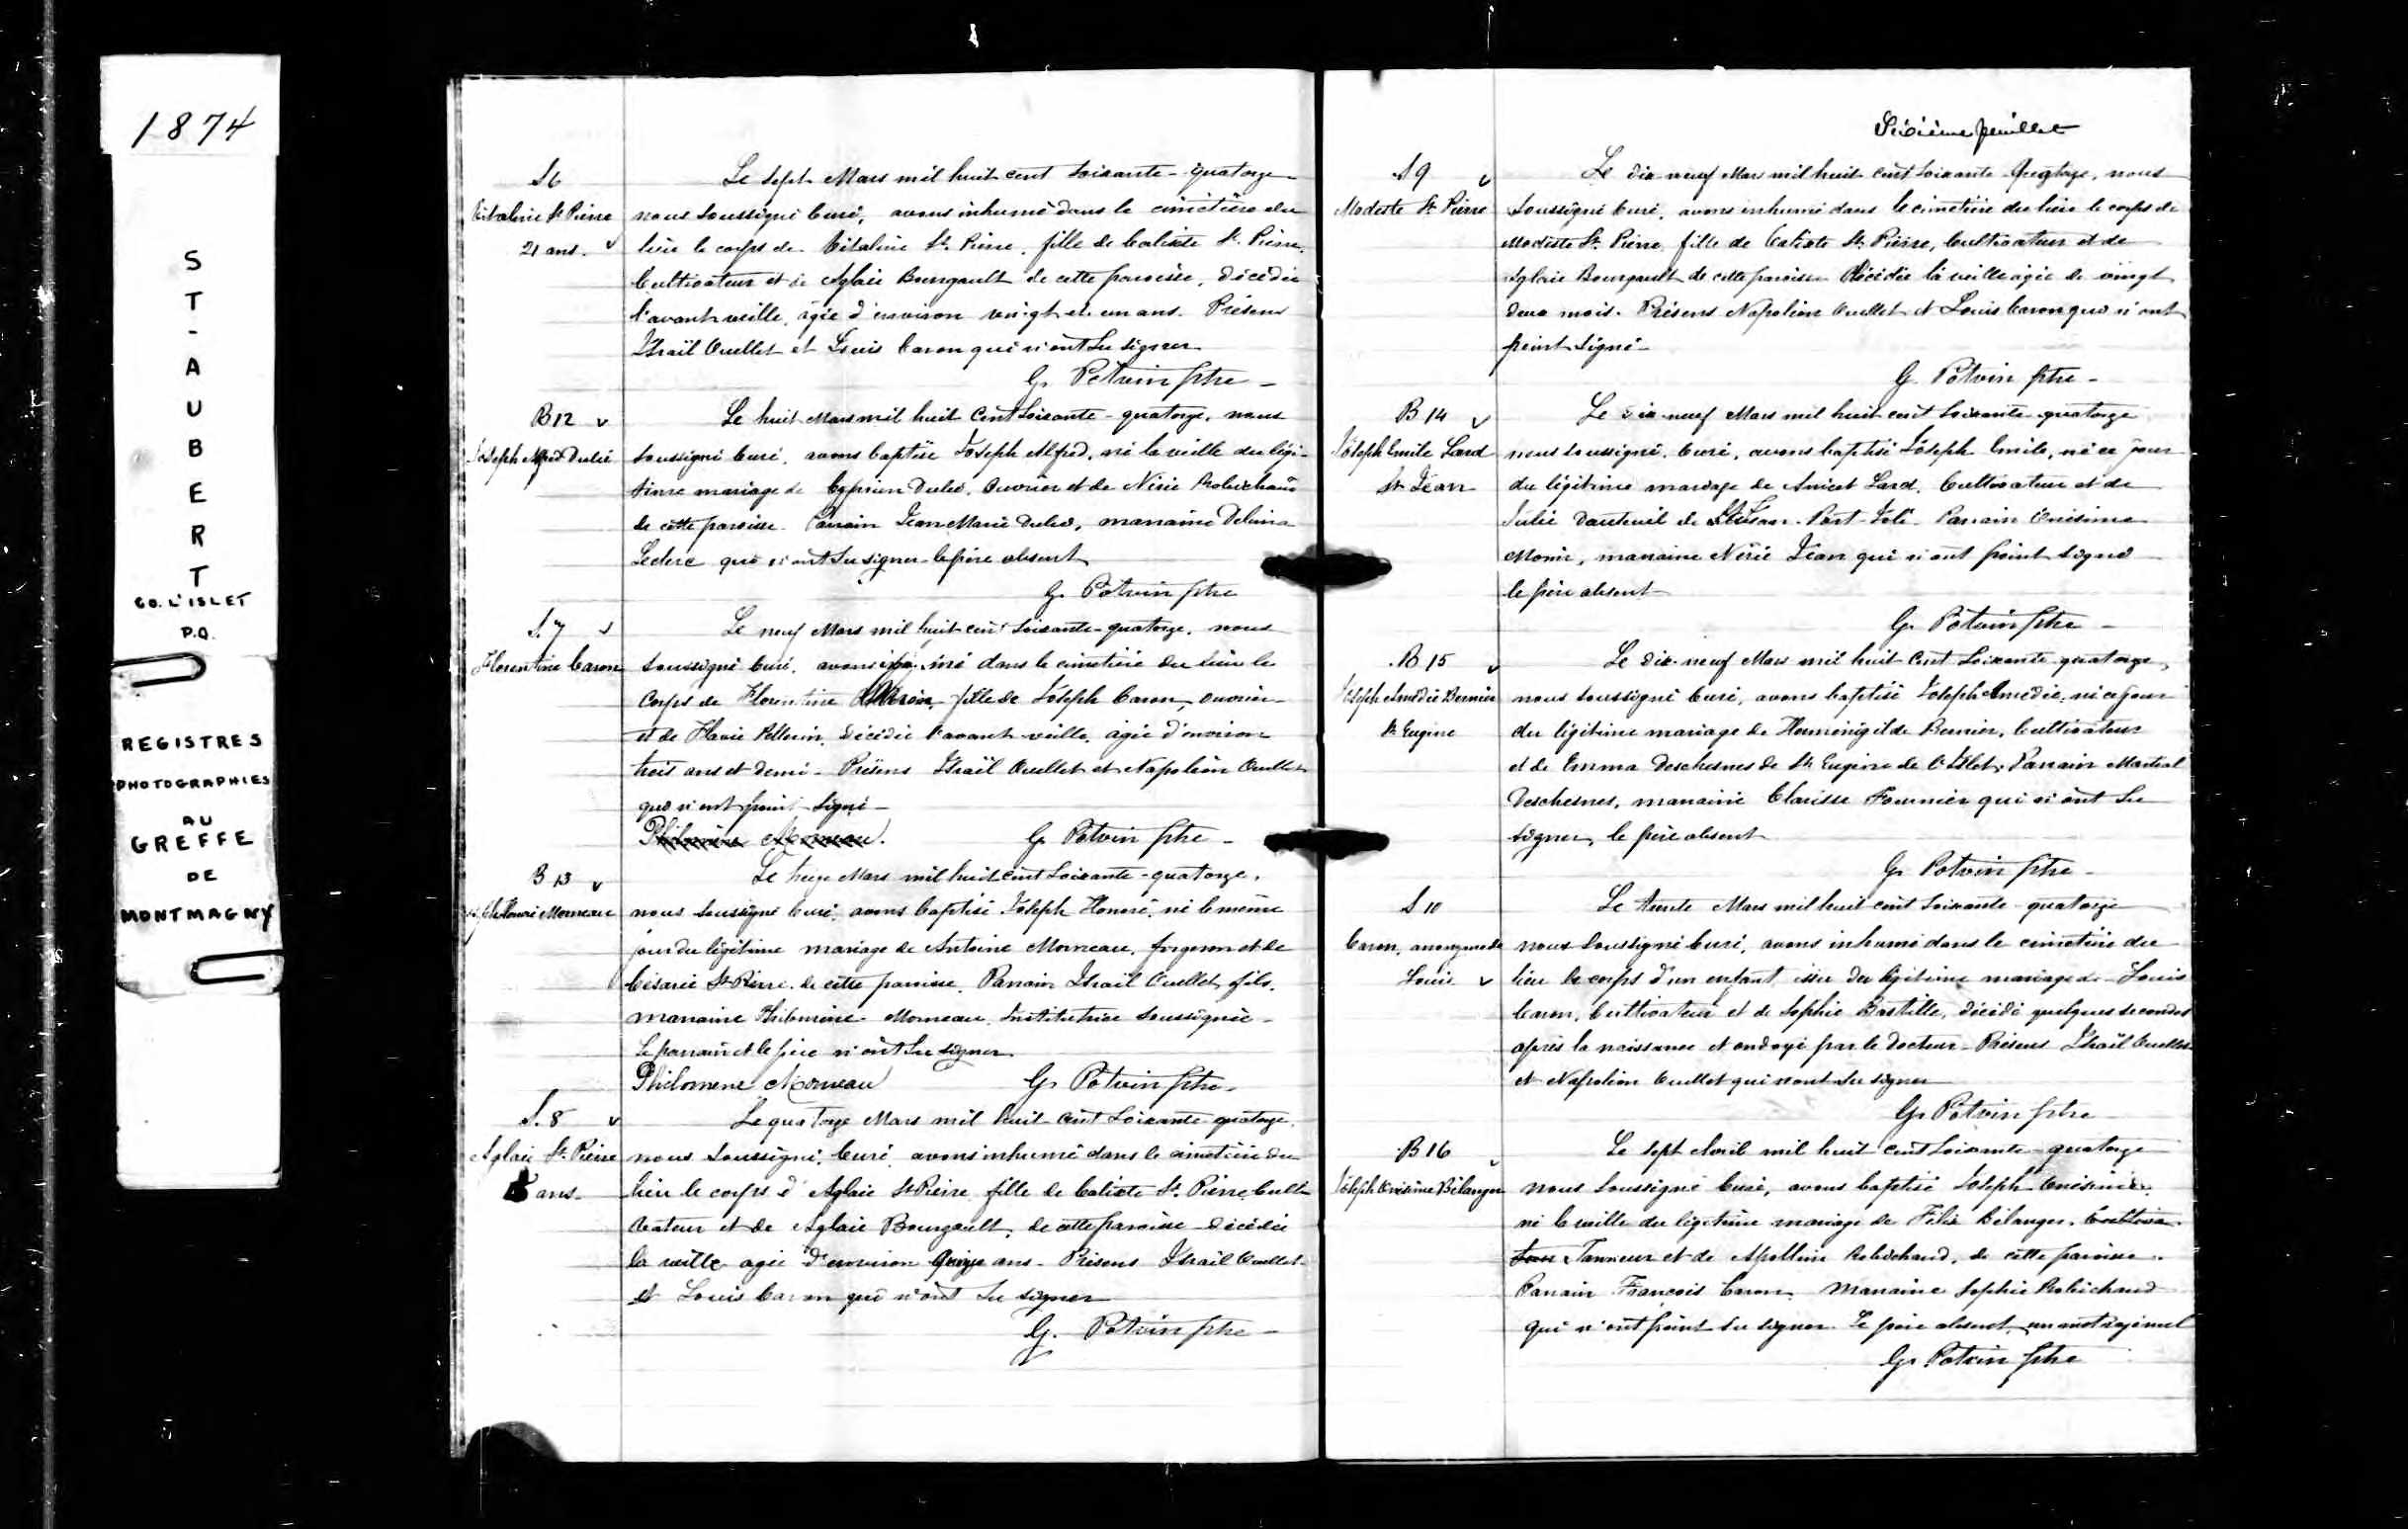 1874
ST-AUBERT
CO. L'ISLET
P.Q.
REGISTRES
PHOTOGRAPHIES
AU
GREFFE
DE
MONTMAGNY
S 6
Vitaline St. Pierre
21 ans.
Le sept Mars mil huit cent soixante-quatorze
nous soussigné Curé, avons inhumé dans le cimetière du
lieu le corps de Vitaline St. Pierre, fille de Calixte St. Pierre,
Cultivateur et de Aglaie Bourgault de cette paroisse, décédée
l'avant veille, agée d'environ vingt et un ans. Présens
Israïl Ouellet et Louis Caron qui n'ont su signer
G. Potvin ptre
B 12
Joseph Alfred Dubé
Le huit Mars mil huit cent soixante-quatorze, nous
soussigné Curé, avons baptisé Joseph Alfred, né la veille du légi-
time mariage de Cyprien Dubé, Ouvrier et de Nérée Robichaud
de cette paroisse. Parrain Jean Marie Dubé, marraine Delima
Leclerc qui n'ont su signer le père absent
G. Potvin ptre
S. 7
Florentine Caron
Le neuf Mars mil huit cent soixante-quatorze, nous
soussigné Curé, avons inhumé dans le cimetière du lieu le
Corps de Florentine Caron, fille de Joseph Caron, ouvrier
et de Flavie Pellerin, décédée l'avant-veille, agée d'environ
trois ans et demi - Présens Israïl Ouellet et Napoléon Ouellet
qui n'ont point signé -
Philomène Morneau. G. Potvin ptre -
B 13
Honoré Morneau
Le treize Mars mil huit cent soixante-quatorze,
nous soussigné Curé, avons baptisé Joseph Honoré, né le même
jour du légitime mariage de Antoine Morneau, forgeron et de
Césarie St. Pierre, de cette paroisse. Parrain Israïl Ouellet, fils,
marraine Philomène Morneau, Institutrice soussignée -
Le parrain et le père n'ont su signer
Philomene Morneau G. Potvin ptre.
S. 8
Aglaie St. Pierre
ans -
Le quatorze Mars mil huit cent soixante quatorze,
nous soussigné, Curé, avons inhumé dans le cimetière du
lieu le corps d'Aglaie St Pierre, fille de Calixte St. Pierre, Culti
vateur et de Aglaie Bourgault, de cette paroisse décédée
la veille agée d'environ quinze ans - Présens Israïl Ouellet
et Louis Caron qui n'ont su signer
G. Potvin ptre -
Sixième feuillet
S 9
Modeste St. Pierre
Le dix neuf Mars mil huit cent soixante Quatorze, nous
soussigné Curé, avons inhumé dans le cimetière du lieu le corps de
Modeste St. Pierre, fille de Calixte St. Pierre, Cultivateur et de
Aglaie Bourgault de cette paroisse Décédée la veille agée de vingt
deux mois. Présens Napoléon Ouellet et Louis Caron qui n'ont
point signé -
G. Potvin ptre -
B 14
Joseph Emile Lard
St Jean
Le dix neuf Mars mil huit cent soixante quatorze
nous soussigné, Curé, avons baptisé Joseph Emile, né ce jour
du légitime mariage de Anicet Lard, Cultivateur et de
Julie Dauteuil de St Jean-Port-Joli. Parrain Onésime
Morin, marraine Nérée Jean qui n'ont point signé
le père absent
G. Potvin ptre -
B 15
Joseph Amédée Bernier
St. Eugène
Le dix-neuf Mars mil huit cent soixante quatorze,
nous soussigné Curé, avons baptisé Joseph Amédée, né ce jour
du légitime mariage de Herménégilde Bernier, Cultivateur
et de Emma Deschesnes de St. Eugène de l'Islet, Parrain Martial
Deschesnes, marraine Clarisse Fournier qui n'ont su
signer, le père absent
G. Potvin ptre -
S 10
Caron, anonyme de
Louis
Le trente Mars mil huit cent soixante quatorze
nous soussigné Curé, avons inhumé dans le cimetière du
lieu le corps d'un enfant, issu du légitime mariage de Louis
Caron, Cultivateur et de Sophie Bastille, décédé quelques secondes
après la naissance et ondoyé par le docteur - Présens Israïl Ouellet
et Napoléon Ouellet qui n'ont su signer
G. Potvin ptre
B 16
Joseph Onésime Bélanger
Le sept Avril mil huit cent soixante quatorze
nous soussigné Curé, avons baptisé Joseph Onésime,
né la veille du légitime mariage de Félix Bélanger, Cultiva-
teur Tanneur et de Apolline Robichaud, de cette paroisse.
Parrain François Caron, Marraine Sophie Robichaud
qui n'ont point su signer. Le père absent, un mot rayé nul
G. Potvin ptre